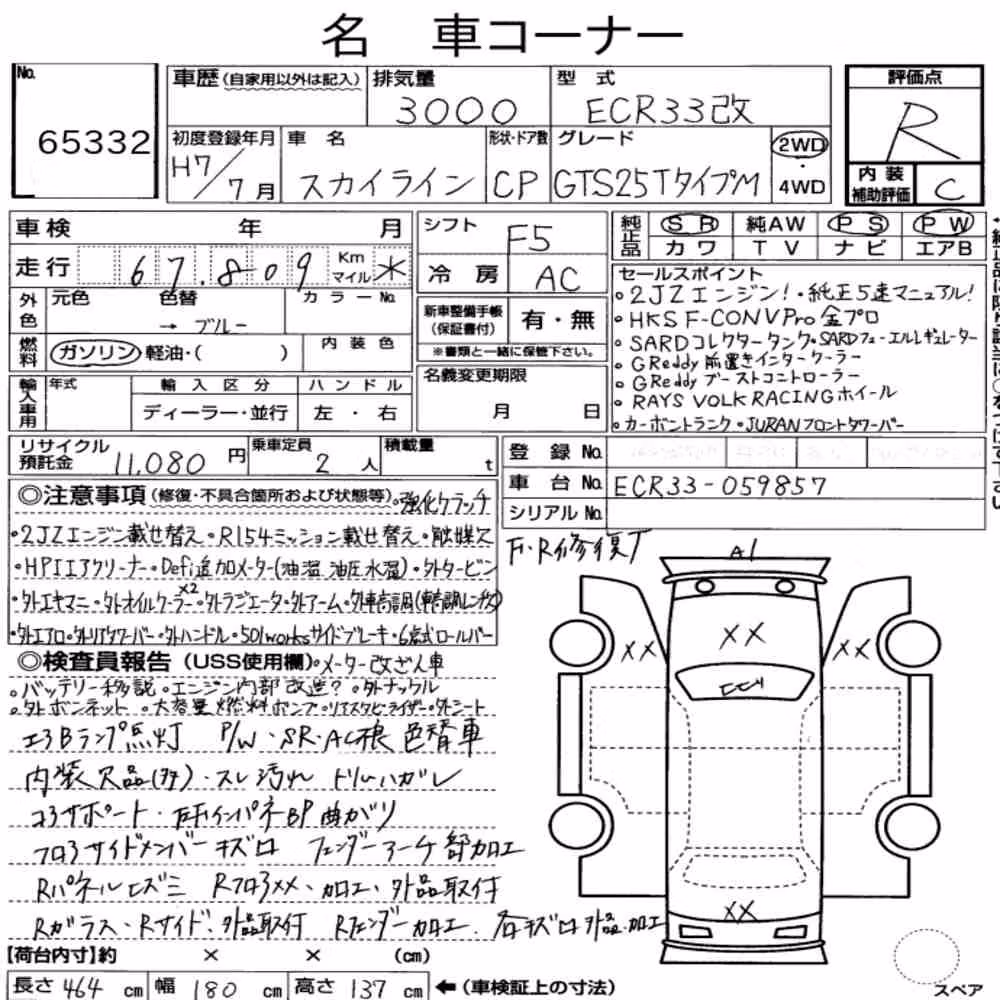 名 車コーナー
No. 65332
車歴(自家用以外は記入) 排気量 3000 型式 ECR33改
評価点 R
内装補助評価 C
初度登録年月 H7/7月 車名 スカイライン 形状・ドア数 CP グレード GTS25TタイプM 2WD・4WD
車検 年 月
走行 67,809 Km マイル ※
シフト F5
冷房 AC
純正品 SR 純AW PS PW
カワ TV ナビ エアB
外色 元色 色替 → ブルー カラーNo.
燃料 ガソリン 軽油・( ) 内装色
新車整備手帳(保証書付) 有・無
※書類と一緒に保管下さい。
輸入車用 年式 輸入区分 ディーラー・並行 ハンドル 左・右
名義変更期限 月 日
セールスポイント
・2JZエンジン!・純正5速マニュアル!
・HKS F-CONVPro 金プロ
・SARDコレクタータンク・SARDフューエルレギュレーター
・GReddy 前置きインタークーラー
・GReddy ブーストコントローラー
・RAYS VOLK RACINGホイール
・カーボントランク・JURANフロントタワーバー
リサイクル預託金 11,080円 乗車定員 2人 積載量 t
登録No.
車台No. ECR33-059857
シリアルNo.
◎注意事項(修復・不具合箇所および状態等)・強化クラッチ
・2JZエンジン載せ替え・R154ミッション載せ替え・触媒欠
・HPIエアクリーナー・Defi追加メーター(油温 油圧 水温)・外タービン
・外エキマニ・外オイルクーラー×2・外ラジエータ・外アーム・外車高調(車高調レンチ欠)
・外エアロ・外リアタワーバー・外ハンドル・501worksサイドブレーキ・6点式ロールバー
◎検査員報告(USS使用欄)・メーター改ざん車
・バッテリー移設・エンジン内部改造?・外ナックル
・外ボンネット・大容量燃料ポンプ・リアスタビライザー・外シート
エアBランプ点灯 P/W・SR・AC根 色替車
内装欠品(多)・スレ汚れ ドリルハガレ
コアサポート・右Fインパネ BP曲がり
フロアサイドメンバーキズロ フェンダーアーチ部加工
RパネルヒズミRフロア××・加工・外品取付
Rガラス・Rサイド・外品取付 Rフェンダー加工 各キズロ外品・加工
F・R修復了
A1
××
××
××
ヒビ
××
スペア
【荷台内寸】約 × × (cm)
長さ 464 cm 幅 180 cm 高さ 137 cm ←(車検証上の寸法)